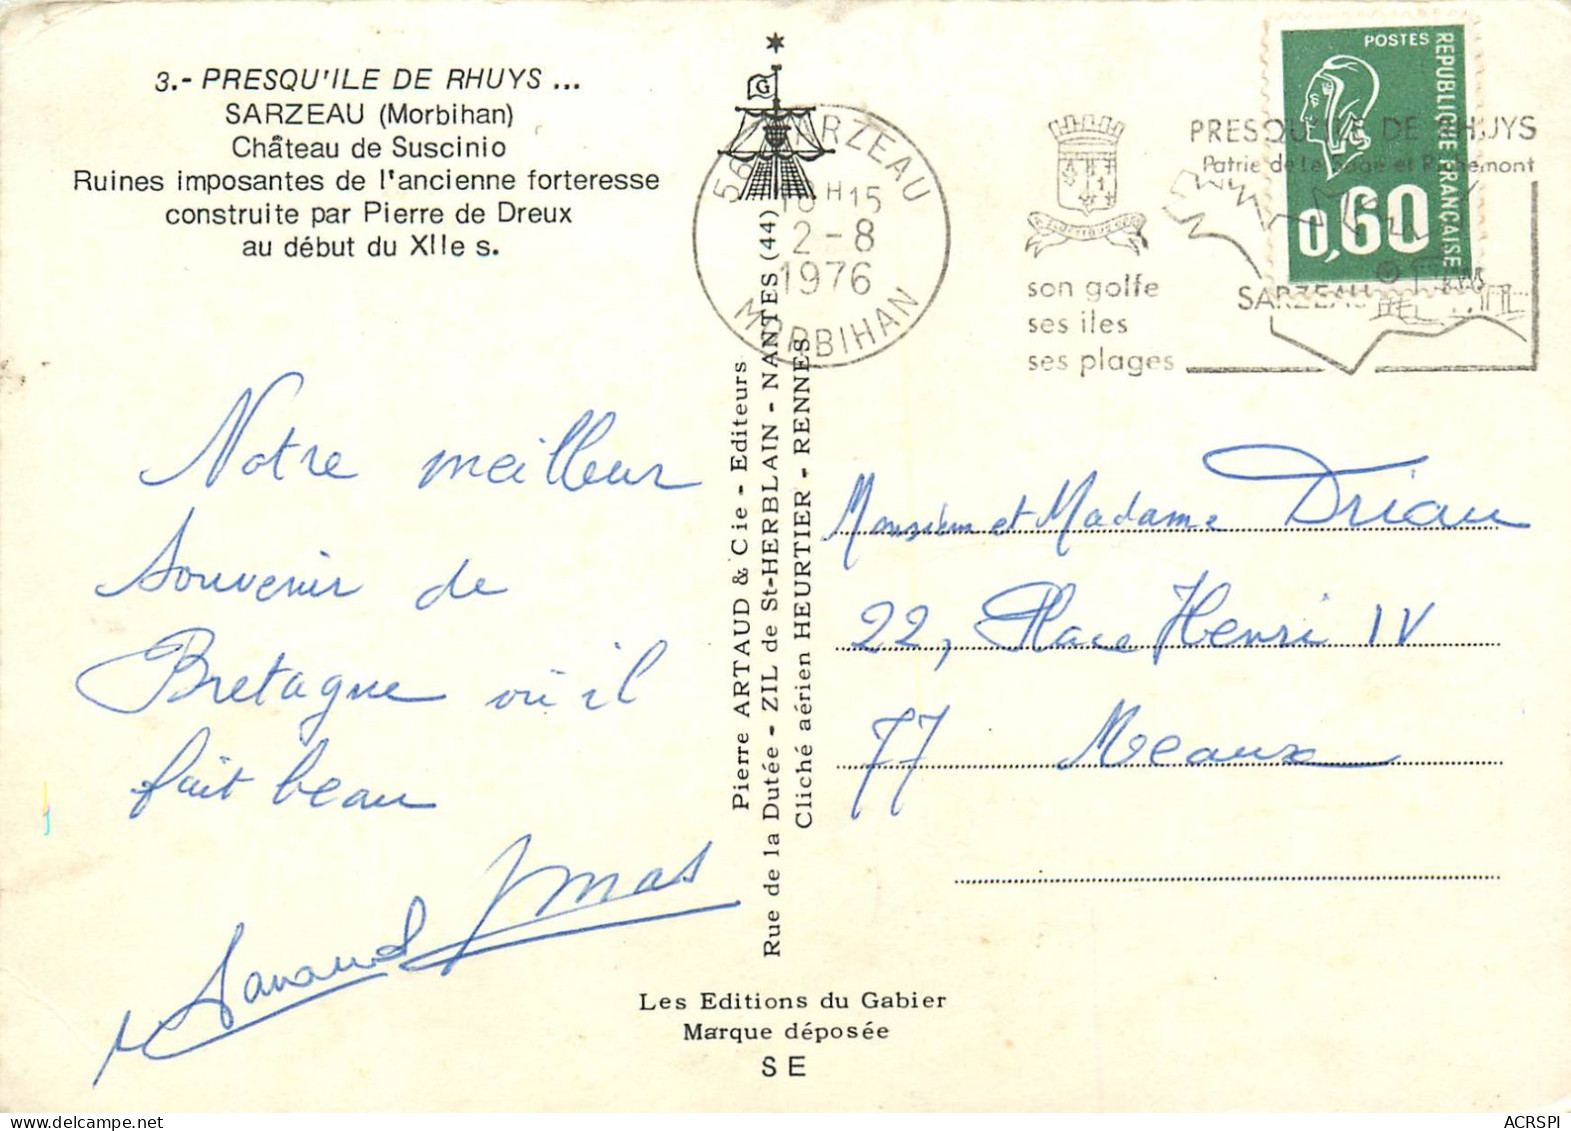 3.- PRESQU'ILE DE RHUYS ...
SARZEAU (Morbihan)
Château de Suscinio
Ruines imposantes de l'ancienne forteresse
construite par Pierre de Dreux
au début du XIIe s.
G
56 SARZEAU
18 H 15
2 - 8
1976
MORBIHAN
PRESQU'ILE DE RHUYS
Patrie de Le Sage et Richemont
son golfe
ses iles
ses plages
SARZEAU
POSTES
REPUBLIQUE FRANÇAISE
0,60
Notre meilleur
souvenir de
Bretagne où il
fait beau
Pierre ARTAUD & Cie - Editeurs
Rue de la Dutée - ZIL de St-HERBLAIN - NANTES (44)
Cliché aérien HEURTIER - RENNES
Monsieur et Madame Driau
22, Place Henri IV
77 Meaux
Les Editions du Gabier
Marque déposée
S E
ACRSPI